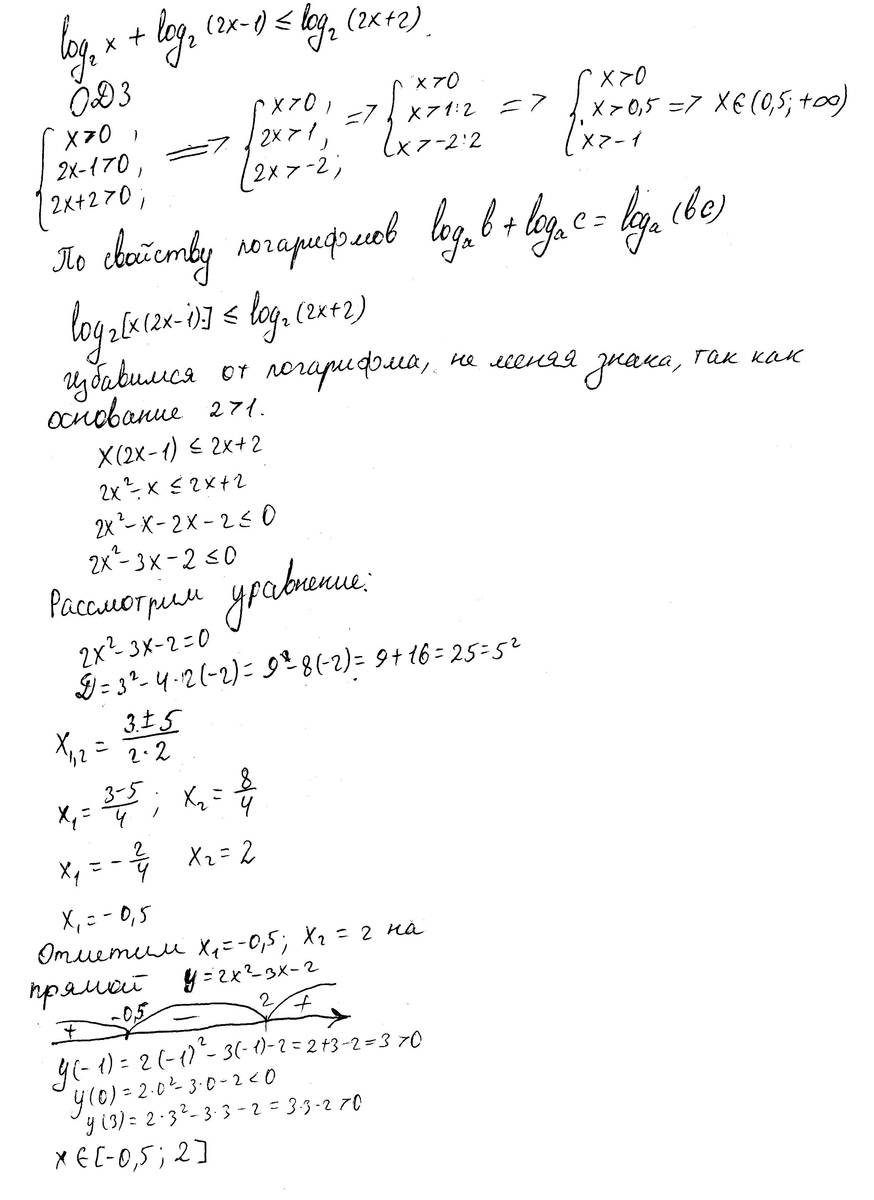 log₂x + log₂(2x-1) ≤ log₂(2x+2).
ОДЗ
{x>0, 2x-1>0, 2x+2>0; => {x>0, 2x>1, 2x>-2; => {x>0 x>1:2 x>-2:2 => {x>0 x>0,5 x>-1 => x∈(0,5; +∞)
По свойству логарифмов logₐb + logₐc = logₐ(bc)
log₂[x(2x-1)] ≤ log₂(2x+2)
Избавимся от логарифма, не меняя знака, так как
основание 2>1.
x(2x-1) ≤ 2x+2
2x²-x ≤ 2x+2
2x²-x-2x-2 ≤ 0
2x²-3x-2 ≤ 0
Рассмотрим уравнение:
2x²-3x-2=0
D=3²-4·2(-2)=9-8(-2)=9+16=25=5²
x₁,₂ = (3±5)/(2·2)
x₁ = (3-5)/4; x₂ = 8/4
x₁ = -2/4 x₂ = 2
x₁ = -0,5
Отметим x₁=-0,5; x₂ = 2 на
прямой y=2x²-3x-2
+ -0,5 - 2 +
y(-1) = 2(-1)²-3(-1)-2=2+3-2=3>0
y(0)=2·0²-3·0-2<0
y(3)=2·3²-3·3-2=3·3-2>0
x∈[-0,5; 2]